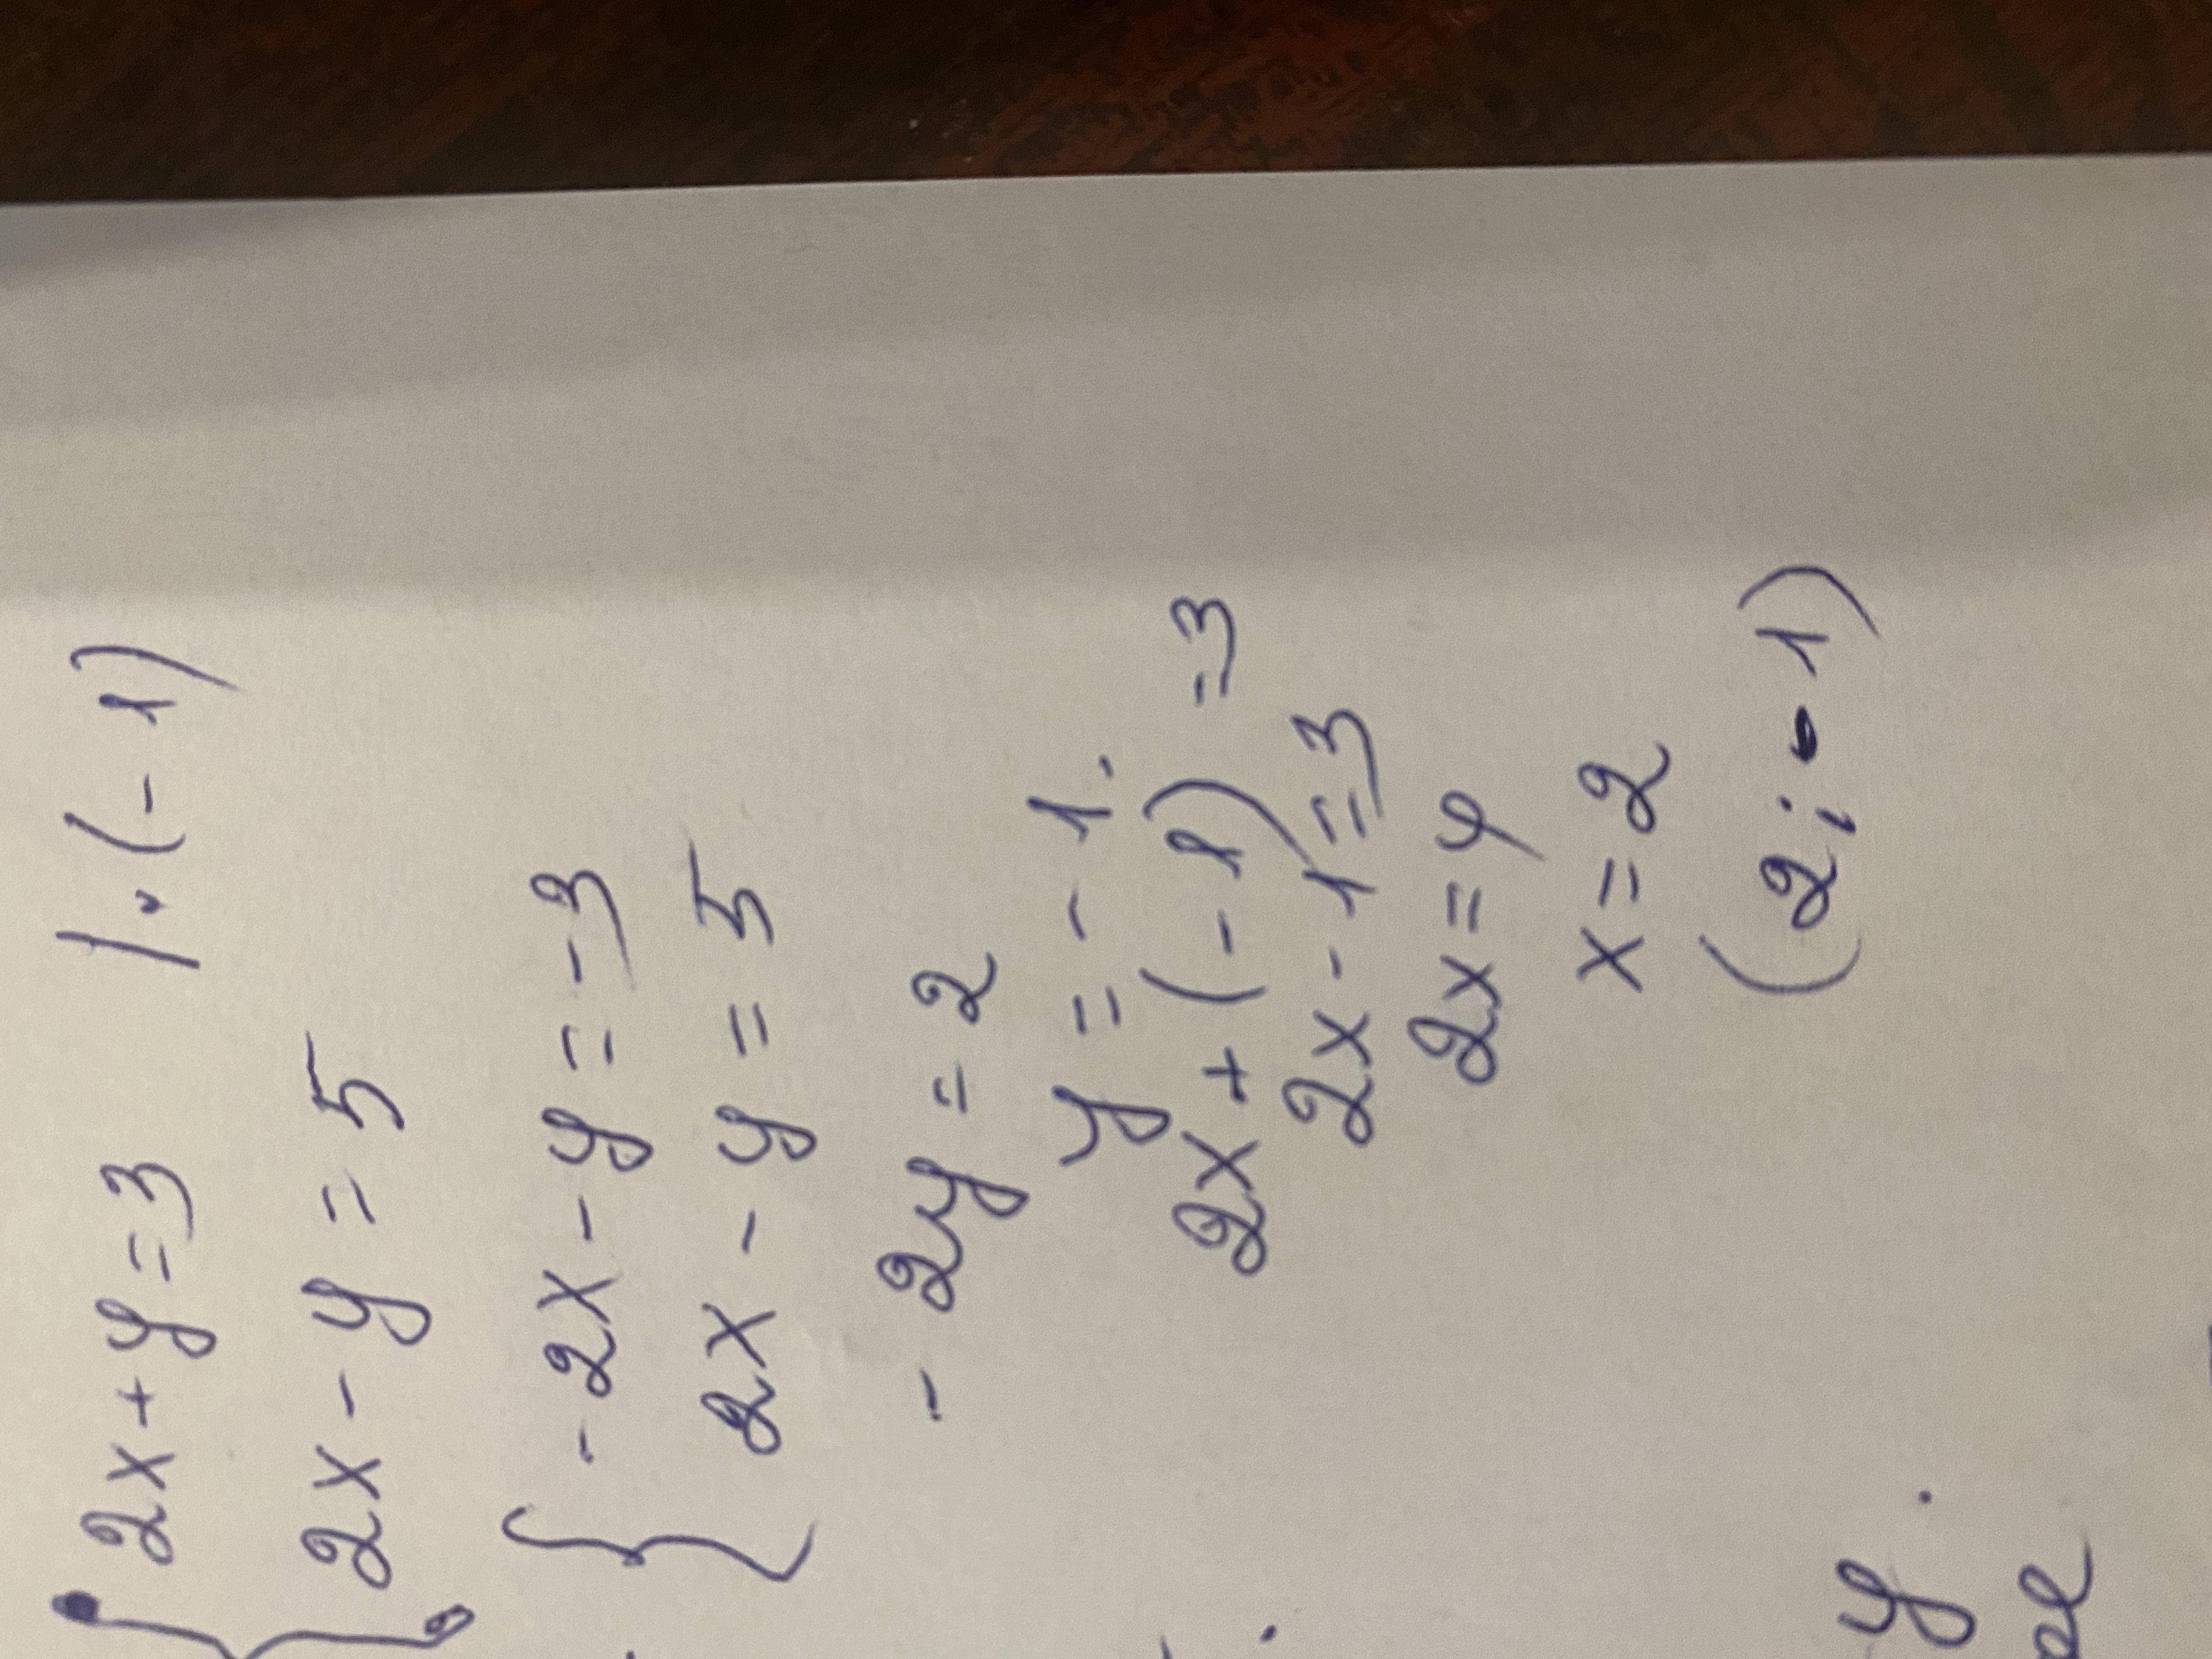 { 2x + y = 3 | · (-1)
2x - y = 5
{ -2x - y = -3
2x - y = 5
- 2y = 2
y = - 1.
2x + (-1) = 3
2x - 1 = 3
2x = 4
x = 2
(2; -1)
y.